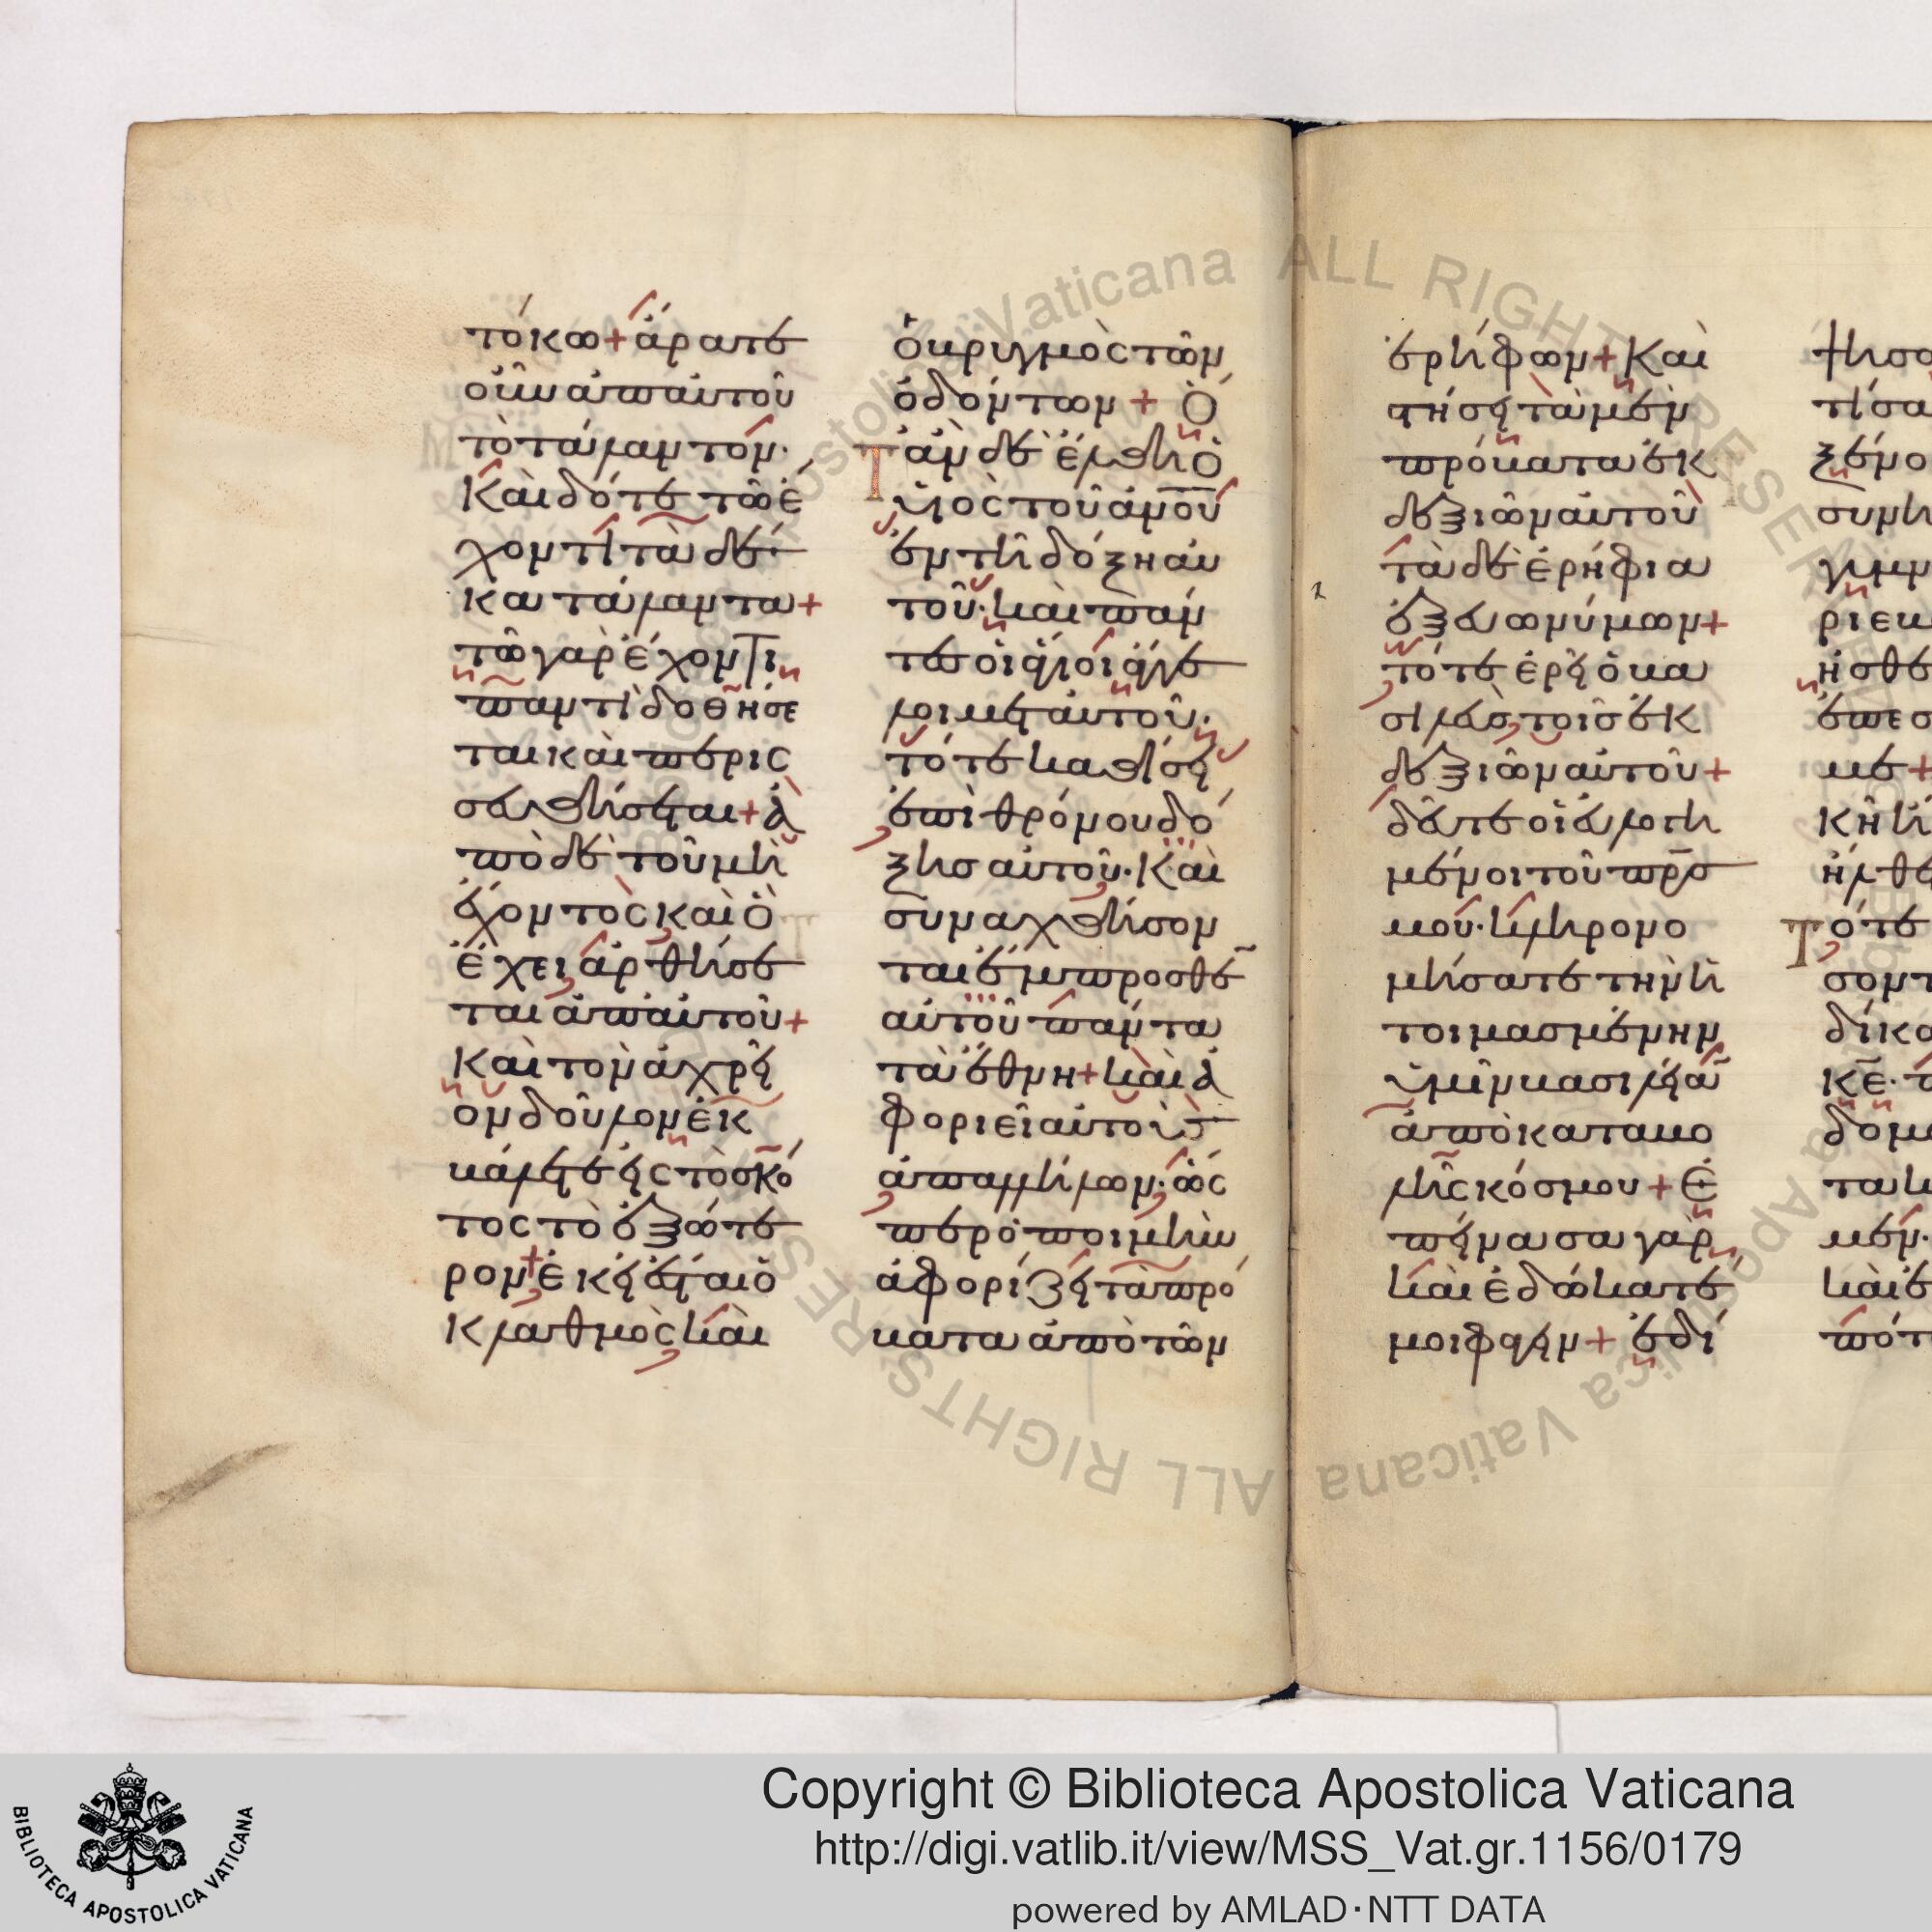 τόκω + ἄρατε
οὖν ἀπ αὐτοῦ
τὸ τάλαντον·
Καὶ δότε τῶ ἔ
χοντι τὰ δέ
κα τάλαντα +
τῶ γὰρ ἔχοντι
παντὶ δοθήσε
ται καὶ περισ
σευθήσεται + ἀ
πὸ δὲ τοῦ μὴ
ἔχοντος καὶ ὃ
ἔχει ἀρθήσε
ται ἀπ αὐτοῦ +
Καὶ τὸν ἀχρεῖ
ον δοῦλον ἐκ
βάλετε εἰς τὸ σκό
τος τὸ ἐξώτε
ρον + ἐκεῖ ἔσται ὁ
Κλαθμὸς καὶ
ὁ βρυγμὸς τῶν
ὀδόντων + Ὅ
Ταν δὲ ἔλθη ὁ
υἱὸς τοῦ ἀνου
ἐν τῆ δόξη αὐ
τοῦ· καὶ πάν
τες οἱ ἅγιοι ἄγγε
λοι μετ αὐτοῦ·
τότε καθίσει
ἐπὶ θρόνου δό
ξησ αὐτοῦ· Καὶ
συναχθήσον
ται ἔμπροσθε
αὐτοῦ πάντα
τὰ ἔθνη + καὶ ἀ
φοριεῖ αὐτοὺσ
ἀπ αλλήλων· ὥς
περ ὁ ποιμὴν
ἀφορίζει τὰ πρό
βατα ἀπὸ τῶν
ἐρήφων + Καὶ
στήσει τὰ μὲν
πρόβατα ἐκ
δεξιῶν αὐτοῦ
τὰ δὲ ἐρήφια
ἐξ εὐωνύμων +
τότε ἐρεῖ ὁ βα
σιλεὺσ τοῖσ ἐκ
δεξιῶν αὐτοῦ +
δεῦτε οἱ εὐλογη
μένοι τοῦ πρσ
μου· κληρονο
μήσατε τὴν ἡ
τοιμασμένην
ὑμῖν βασιλείαν
ἀπὸ καταβο
λῆς κόσμου + Ἐ
πείνασα γὰρ
καὶ ἐδώκατέ
μοι φαγεῖν + ἐδί
Τότε
Copyright © Biblioteca Apostolica Vaticana
http://digi.vatlib.it/view/MSS_Vat.gr.1156/0179
powered by AMLAD·NTT DATA
BIBLIOTECA APOSTOLICA VATICANA